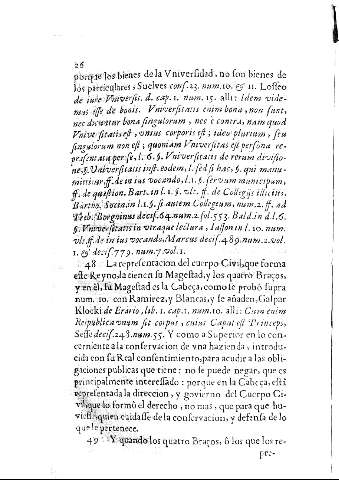 26
porque los bienes de la Vniversidad, no son bienes de
los particulares, Suelves cons. 23. num. 10. & 11. Losseo
de iure Vniversit. d. cap. 1. num. 15. alli: Idem vide-
mus isse de bonis. Vniversitatis enim bona, non sunt,
nec dicuntur bona singulorum, nec è contra, nam quod
Vniversitatis est, vnius corporis est; ideo plurium, seu
singulorum non est; quoniam Vniversitas est persona re-
præsentata per se, l. 6. §. Vniversitatis de rerum divisio-
ne, §. Vniversitatis inst. eodem, l. sed si hac, §. qui manu-
mittitur ff. de in ius vocando, l. 1. §. servum municipum,
ff. de quæstion. Bart. in l. 1. §. vlt. ff. de Collegijs illicitis,
Bartho. Socin. in l. 1. §. si autem Collegium, num. 2. ff. ad
Treb. Borgninus decis. 64. num. 2. fol. 553. Bald. in d. l. 6.
§. Vniversitatis in vtraque lectura, Iason in l. 10. num.
vlt. ff. de in ius vocando, Marcus decis. 489. num. 2. vol.
1. & decis. 779. num. 7. vol. 1.
48 La representacion del cuerpo Civil, que forma
este Reyno, la tienen su Magestad, y los quatro Braços,
y en èl, su Magestad es la Cabeça, como se probò supra
num. 10. con Ramirez, y Blancas, y se añaden, Gaspar
Klocki de Erario, lib. 1. cap. 1. num. 10. alli: Cum enim
Reipublicæ vnum sit corpus, cuius Caput est Princeps,
Sesse decis. 248. num. 55. Y como a Superior en lo con-
cerniente a la conservacion de vna hazienda, introdu-
cida con su Real consentimiento, para acudir a las obli-
gaciones publicas que tiene: no se puede negar, que es
principalmente interessado: porque en la Cabeça, està
representada la direccion, y govierno del Cuerpo Ci-
vil, que lo formò el derecho, no mas, que para que hu-
viesse quien cuidasse de la conservacion, y defensa de lo
que le pertenece.
49 Y quando los quatro Braços, ò los que los re-
pre-